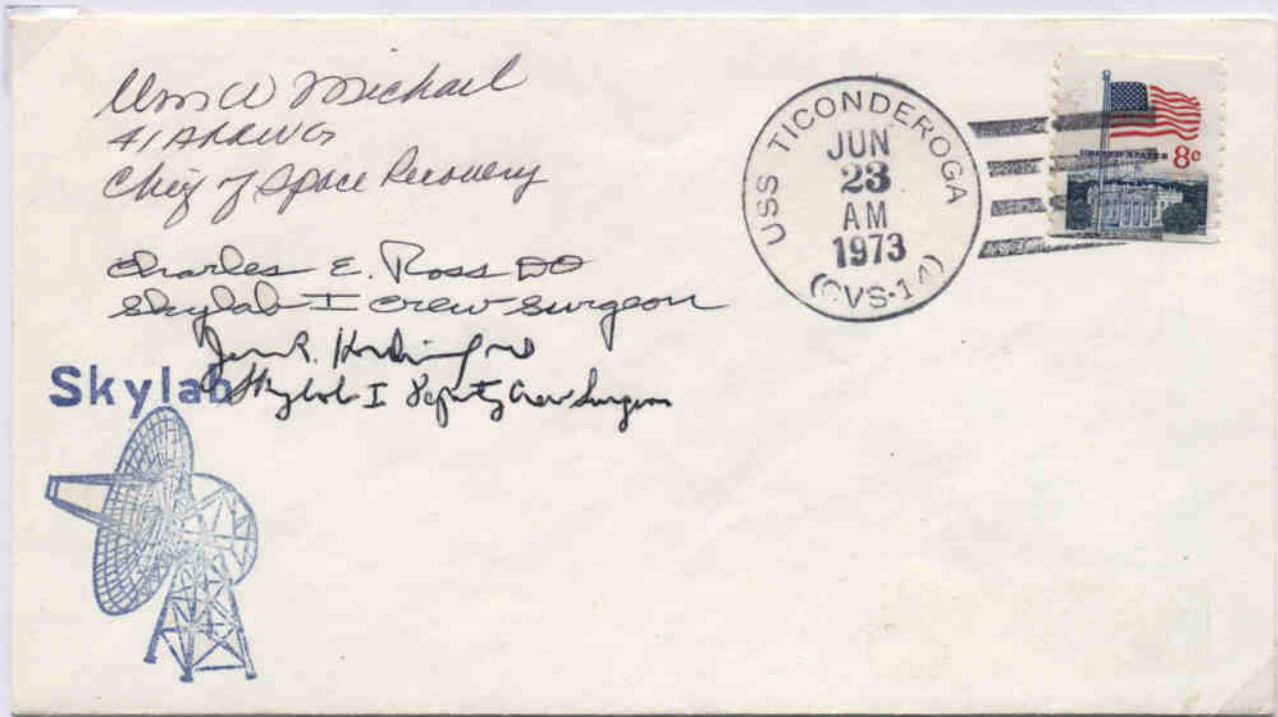 Wm W Michael
41 ARRWG
Chief of Space Recovery
Charles E. Ross DO
Skylab I crew surgeon
Jerry R.
Skylab I Deputy Crew Surgeon
Skylab
USS TICONDEROGA
JUN
23
AM
1973
(CVS-14)
8c